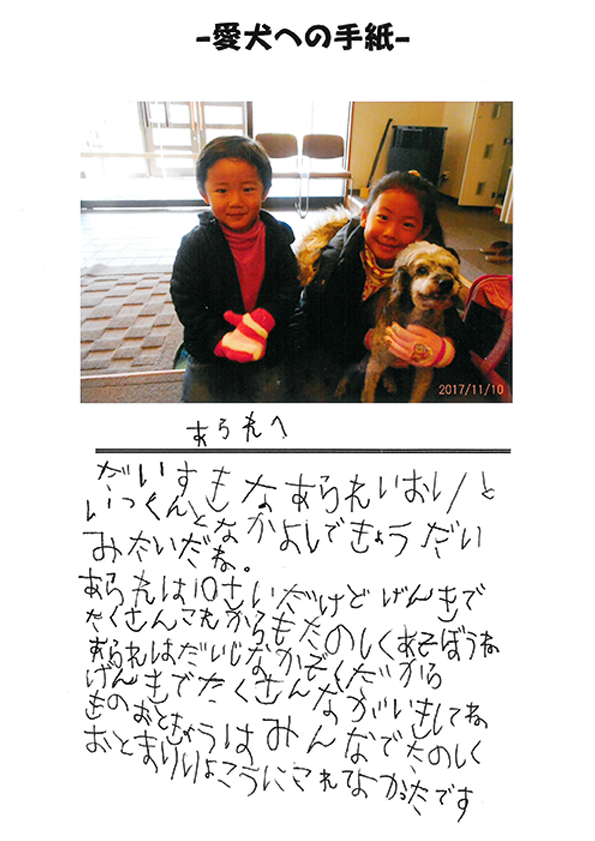 -愛犬への手紙-
2017/11/10
あられへ
だいすきなあられいおりと
いっくんとなかよしできょうだい
みたいだね。
あられは10さいだけどげんきで
たくさんこれからもたのしくあそぼうね
あられはだいじなかぞくだから
げんきでたくさんながいきしてね
きのおときょうはみんなでたのしく
おとまりりょこうにこれてよかったです